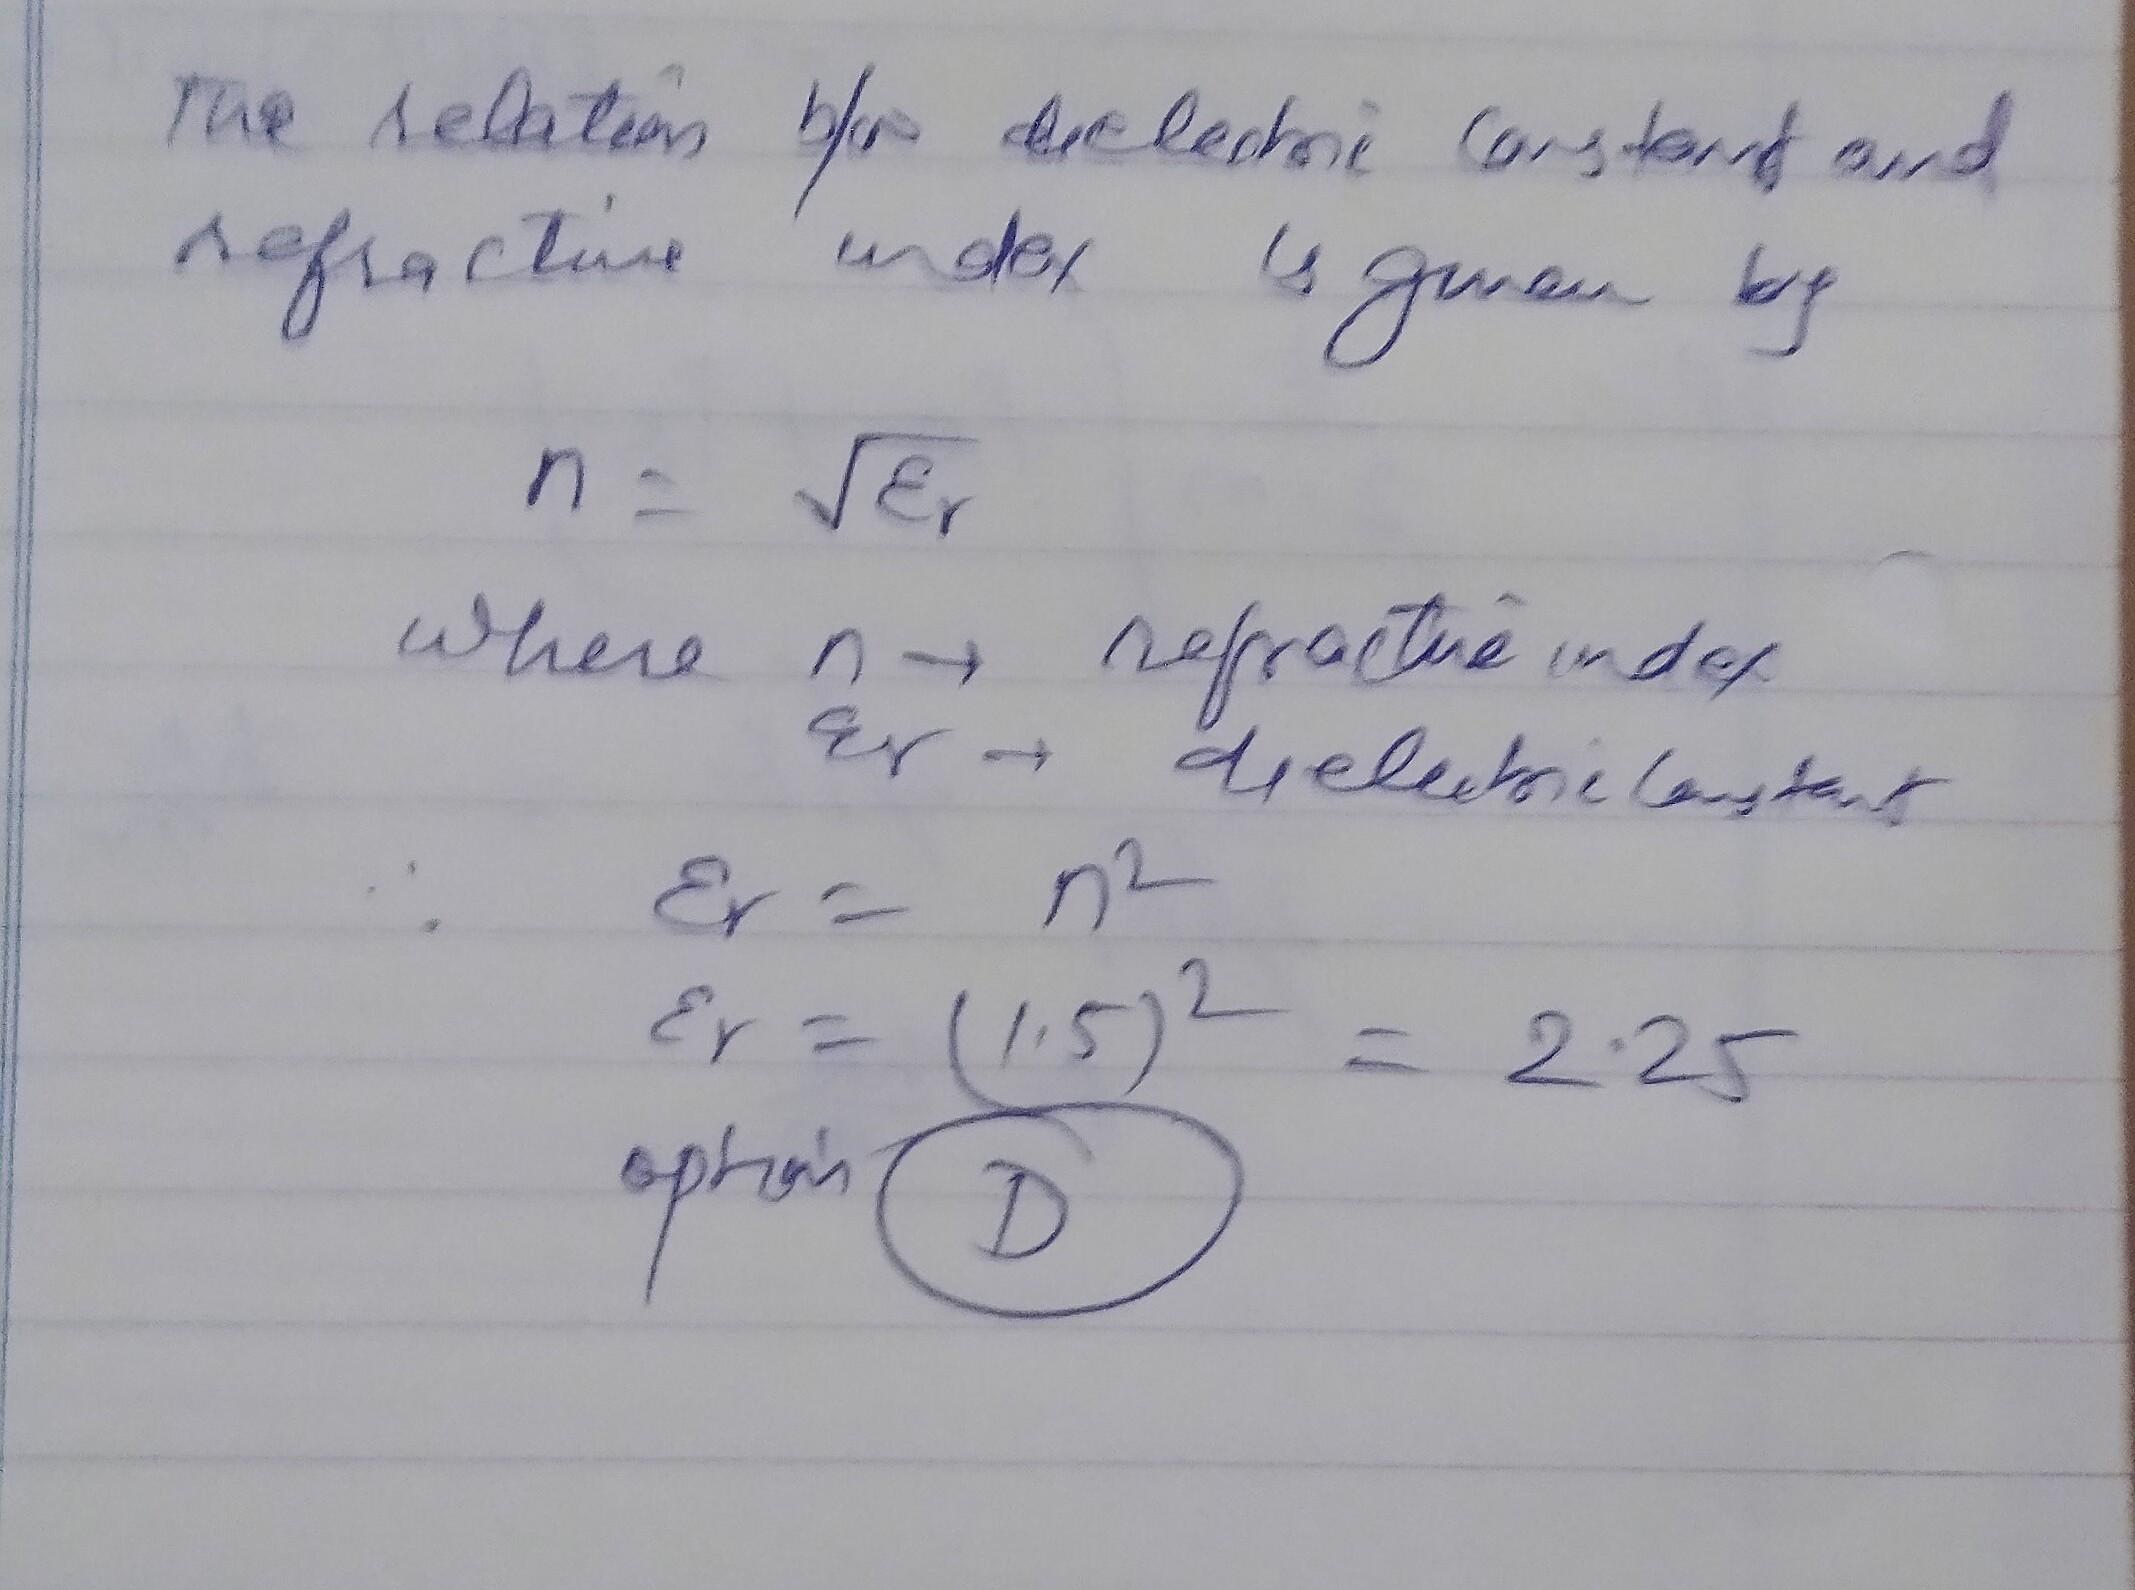 The relation b/w dielectric constant and
refractive index is given by
n = √εr
where n → refractive index
εr → dielectric constant
∴ εr = n²
εr = (1.5)² = 2.25
option D